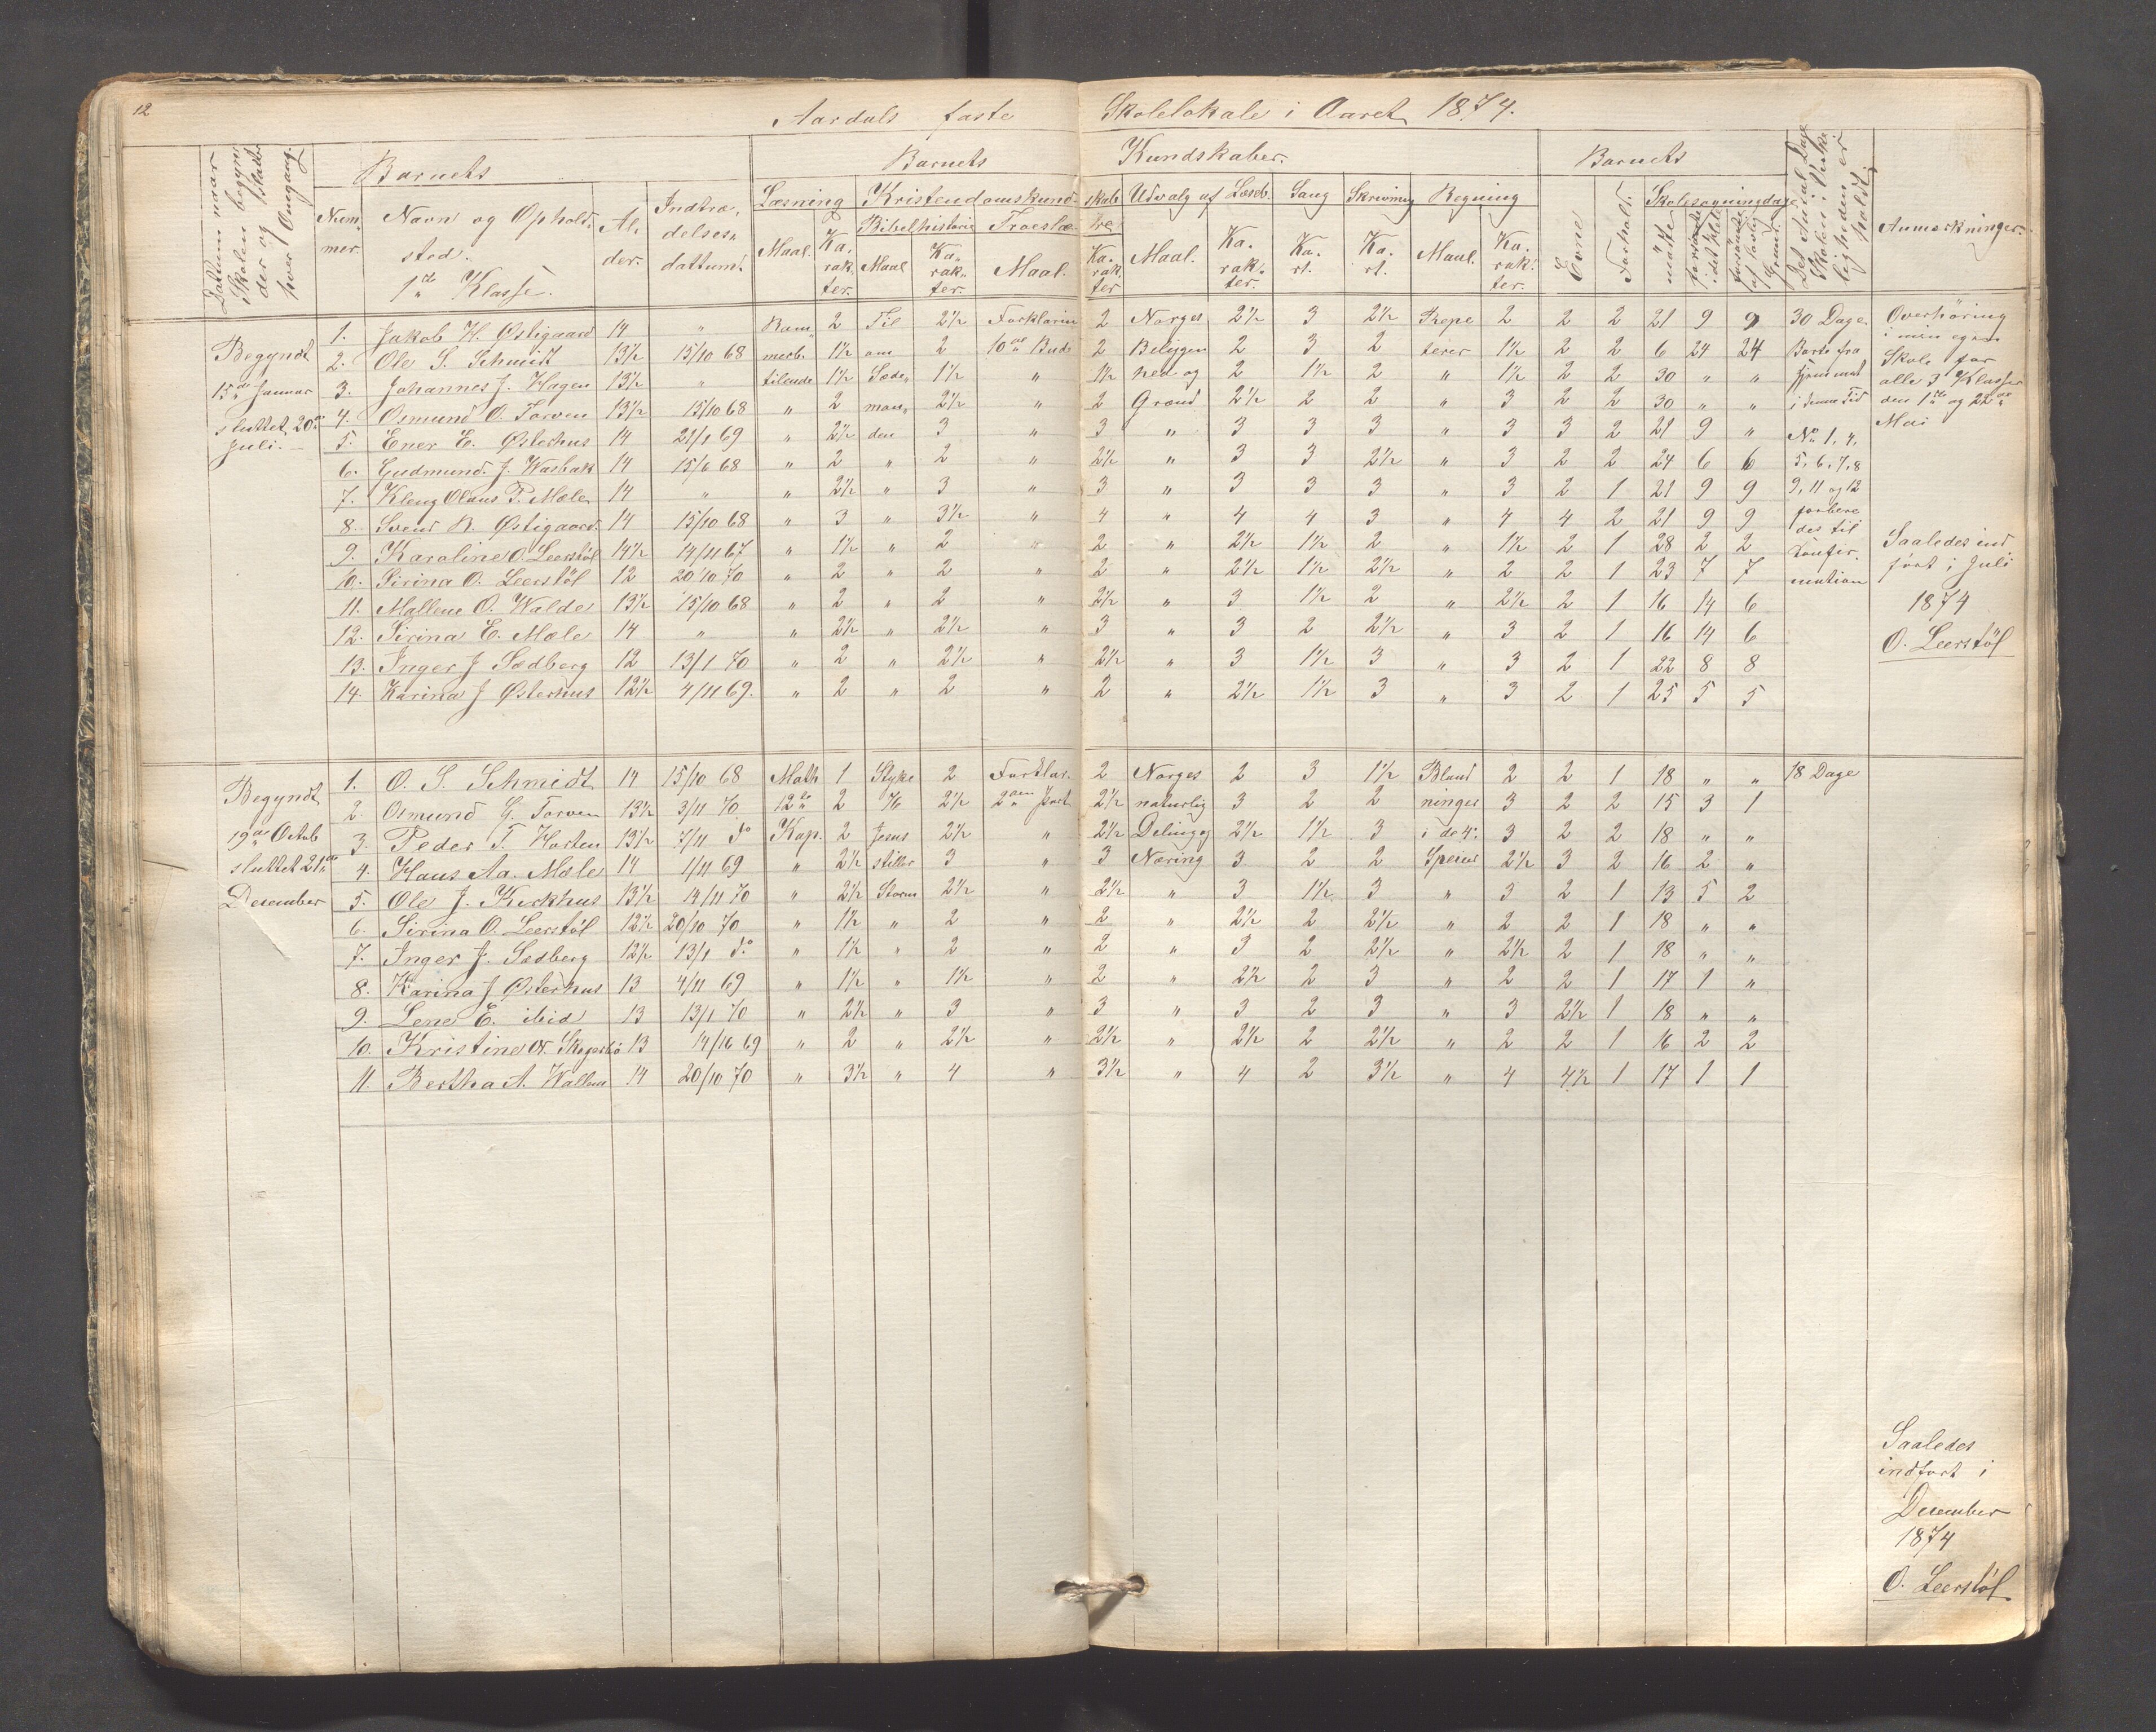 12
Aardals faste Skolelokale i Aaret 1874.
Datum naar Skolen begynder og slutter hver Omgang.
Barnets
Barnets Kundskaber.
Barnets
Det Antal Dage Skolen i Virkeligheden er holdt.
Anmærkninger.
Nummer.
Navn og Opholdssted.
1ste Klasse.
Alder.
Indtrædelsesdattum.
Læsning
Maal. Karakter.
Kristendomskundskab
Bibelhistorie
Maal Karakter.
Troeslære
Maal. Karakter
Udvalg af Læseb.
Maal. Karakter.
Sang
Kart.
Skrivning
Kart.
Regning
Maal. Karakter.
Evne
Forhold.
Skolesøgningsdage
mødte forsømte i det Hele forsømte af lovlig Grund.
Begyndt
15de Januar
sluttet 20de
Juli.
1. Jakob H. Østigaard 14 " Kam 2 Til 2½ Forklarin 2 Norges 2½ 3 2½ Repe 2 2 2 21 9 9 30 Dage
2. Ole S. Schmidt 13½ 15/10 68 merb. 1½ om 2 10de Bud 2 Beliggen 2 3 2 terer 1½ 2 2 6 24 24 Borte fra
3. Johannes J. Hagen 13½ " tilende 1½ Sæde 1½ " 1½ hed og 2 1½ 2 " 1½ 2 2 30 " " Hjemmet
4. Osmund O. Torven 13½ 15/10 68 " 2 man 2½ " 2 Grænd 2½ 2 2 " 3 2 2 30 " " i denne Tid
5. Ener E. Østerhus 14 21/1 69 " 2½ den 3 " 3 " 3 3 3 " 3 3 2 21 9 " No 1, 4,
6. Gudmund J. Wasbak 14 15/6 68 " 2 " 2 " 2½ " 3 3 2½ " 3 2 2 24 6 6 5, 6, 7, 8
7. Kleng Olaus T. Mæle 14 " " 2½ " 3 " 3 " 3 3 3 " 3 2 1 21 9 9 9, 11 og 12
8. Svend R. Østigaard 14 15/10 68 " 3 " 3½ 4 " 4 4 3 " 4 4 2 21 9 9 forbere
9. Karoline O. Leerstöl 14½ 14/11 67 " 1½ " 2 " 2 " 2½ 1½ 2 " 1½ 2 1 28 2 2 des til
10. Sirina O. Leerstöl 12 20/10 70 " 2 " 2 " 2 " 2½ 1½ 2½ " 2 2 1 23 7 7 Konfir
11. Mallene O. Walde 13½ 15/10 68 " 2 " 2 " 2½ " 3 1½ 2 " 2½ 2 1 16 14 6 mation
12. Sirina E. Mæle 14 " " 2½ " 2½ " 3 " 3 2 2½ " 3 2 1 16 14 6
13. Inger J. Sædberg 12 13/1 70 " 2 " 2½ " 2½ " 3 1½ 3 " 3 2 1 22 8 8
14. Karina J Østerhus 12½ 4/11 69. " 2 " 2 " 2 " 2½ 1½ 3 " 3 2 1 25 5 5
Overhøring
i min egen
Skole for
alle 3 Klasser
den 1ste og 22de
Mai
Saaledes ind
ført i Juli
1874
O. Leerstöl
Begyndt
19de Octob
sluttet 21de
December
1. O. S. Schmidt 14 15/10 68 Math 1 Styke 2 Forklar. 2 Norges 2 3 1½ Bland 2 2 1 18 " " 18 Dage
2. Osmund G. Torven 13½ 3/11 70. 12te 2 76 2½ 2den Part 2½ naturlig 3 2 2 ninger 3 2 2 15 3 1
3. Peder T. Horten 13½ 7/11 do Kap. 2 Jesus 2½ " 2½ Deling og 2½ 1½ 3 i de 4 3 2 2 18 " "
4. Hans Aa. Mæle 14 1/11 69 " 2½ stiller 3 " 3 Næring 3 2 2 Speier 2½ 3 2 16 2 "
5. Ole J. Kirkhus 13½ 14/11 70 " 2½ Storm 2½ " 2½ " 3 1½ 3 " 3 2 1 13 5 2
6. Sirina O. Leerstöl 12½ 20/10 70 " 1½ " 2 " 2 " 2½ 2 2½ " 2 2 1 18 " "
7. Inger J. Sædberg 12½ 13/1 do " 1½ " 2 " 2 " 3 2 2½ " 2½ 2 1 18 " "
8. Karina J Østerhus 13 4/11 69 " 1½ " 1½ " 2 " 2½ 2 3 " 2 2 1 17 1 "
9. Lene E. ibid 13 13/1 70 " 2½ " 3 " 3 " 3 2 3 " 3 2½ 1 18 " "
10. Kristine O. 13 14/16 69 " 2 " 2½ " 2½ " 2½ 2 2½ " 2 2 1 16 2 2
11. Bertha A. Wallem 14 20/10 70 " 3½ " 4 " 3½ " 4 2 3½ " 4 4½ 1 17 1 1
Saaledes
indført i
December
1874
O. Leerstöl